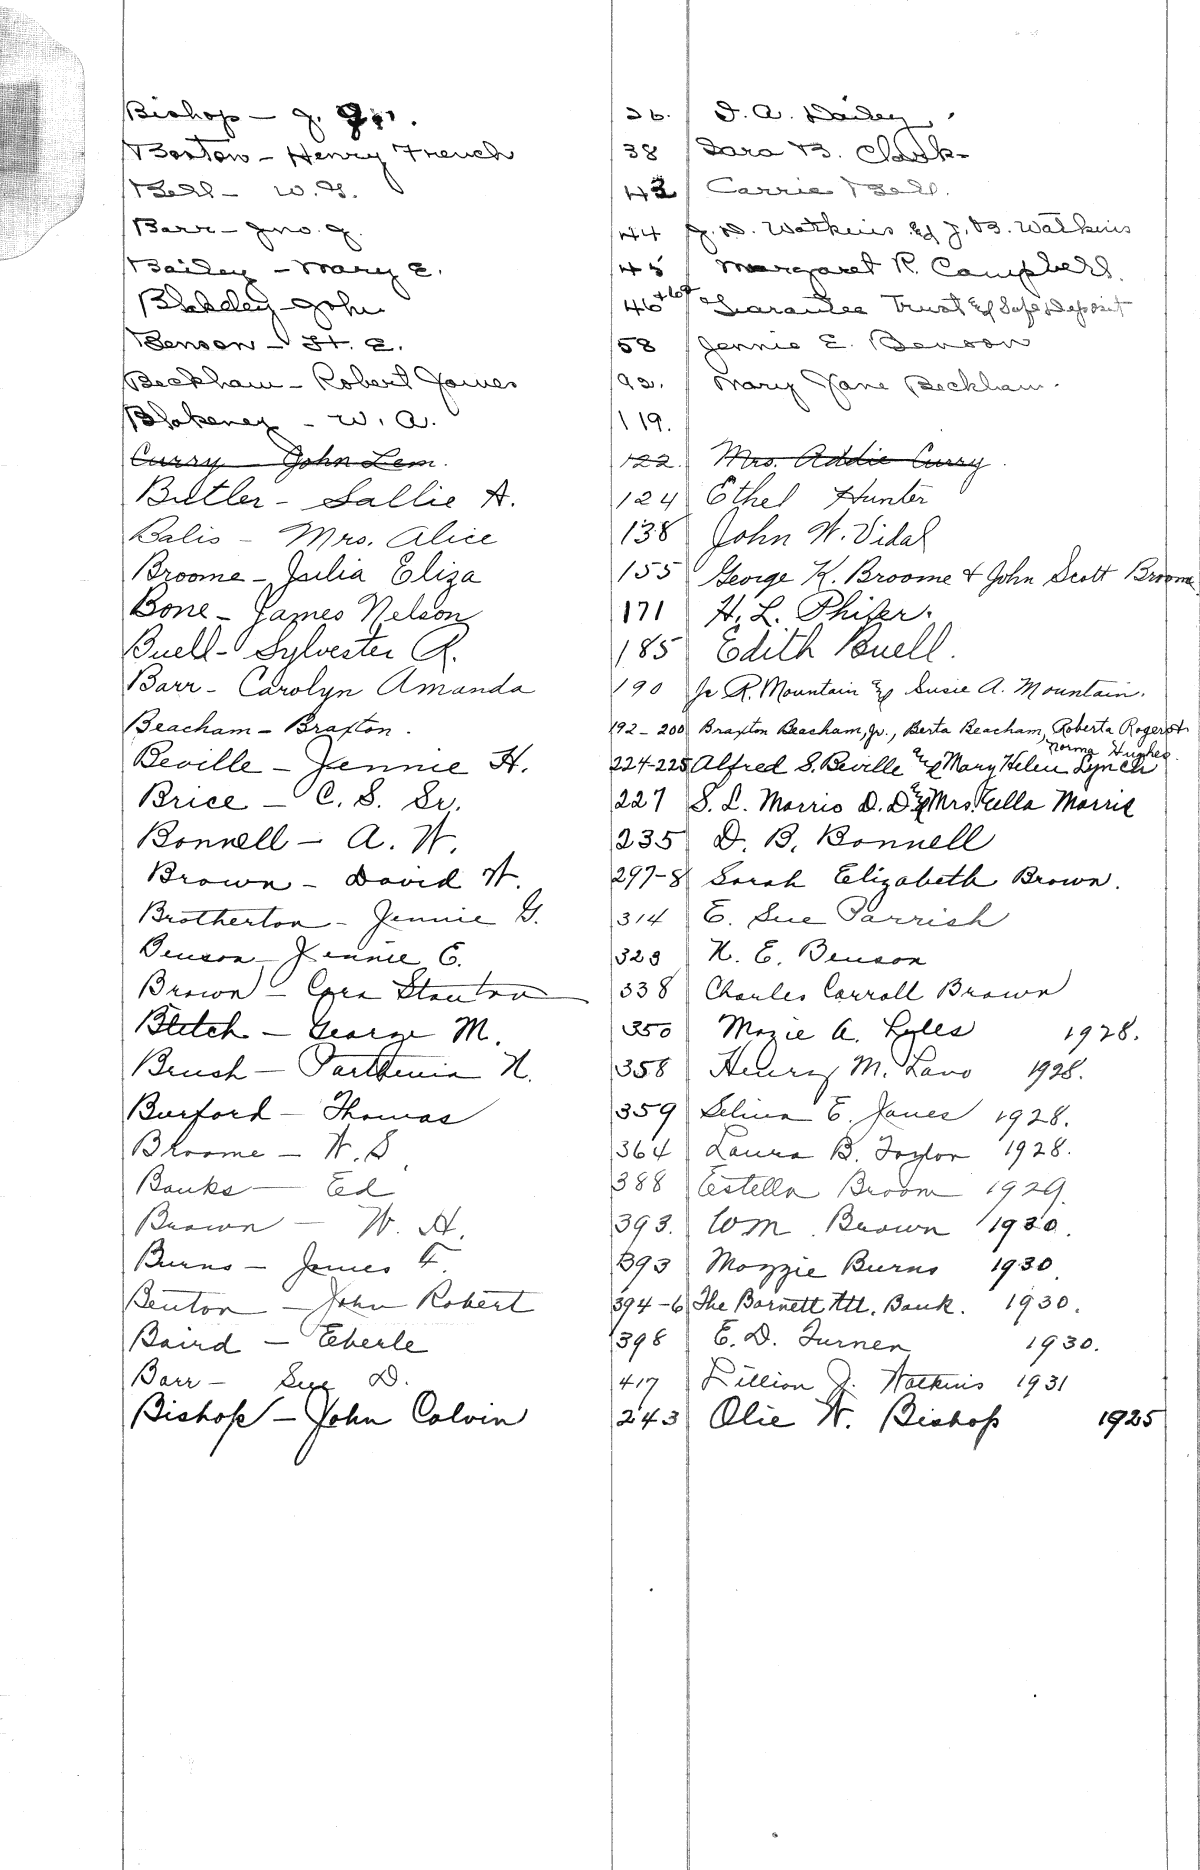 Bishop – J. 26. I. A. Dailey
Boston – Henry French 38 Sara B. Clark
Bell – W. G. 43 Carrie Bell.
Barr – Jno. J. 44 J. D. Watkins & J. B. Watkins
Bailey – Mary E. 45 Margaret R. Campbell.
Blakeley – John 46 Guarantee Trust & Safe Deposit
Benson – H. E. 58 Jennie E. Benson
Beckham – Robert James 92. Mary Jane Beckham.
Blakeney – W. A. 119.
Curry John Lem. 122. Mrs. Addie Curry.
Butler – Sallie A. 124 Ethel Hunter
Balis – Mrs. Alice 138 John W. Vidal
Broome – Julia Eliza 155 George K. Broome & John Scott Broome
Bone – James Nelson 171 H. L. Phifer.
Buell – Sylvester R. 185 Edith Buell.
Barr – Carolyn Amanda 190 R. Mountain & Susie A. Mountain.
Beacham – Braxton. 192–200 Braxton Beacham, Jr., Berta Beacham, Roberta Rogers &
Norma Hughes.
Beville – Jennie H. 224–225 Alfred S. Beville & Mary Helen Lynch
Brice – C. S. Sr. 227 S. L. Morris D. D. & Mrs. Ella Morris
Bonnell – A. W. 235 D. B. Bonnell
Brown – David W. 297–8 Sarah Elizabeth Brown.
Brotherton – Jennie G. 314 E. Sue Parrish
Benson – Jennie E. 323 H. E. Benson
Brown – Cora Stanton 338 Charles Carroll Brown
Blitch – George M. 350 Mozie A. Lyles 1928.
Brush – Parthenia N. 358 Henry M. 1928.
Burford – Thomas 359 Selina E. Jones 1928.
Broome – W. S. 364 Laura B. Taylor 1928.
Banks – Ed 388 Estella Broom 1929.
Brown – W. H. 393. Wm. Brown 1930.
Burns – James F. 393 Mozzie Burns 1930.
Benton – John Robert 394–6 The Barnett Natl. Bank. 1930.
Baird – Eberle 398 E. D. Turner 1930.
Barr – Sue D. 417 Lillian J. Watkins 1931
Bishop – John Colvin 243 Olie W. Bishop 1925